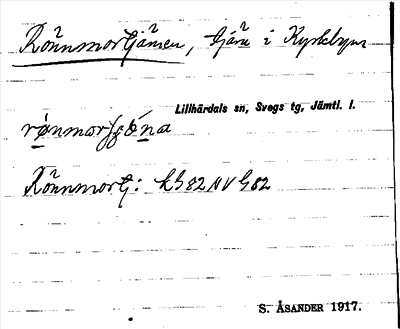 Rönnmortjärnen, tjärn i Kyrkbyn
Lillhärdals sn, Svegs tg, Jämtl. l.
Rönnmortj: kB82NVG82
S. ÅSANDER 1917.